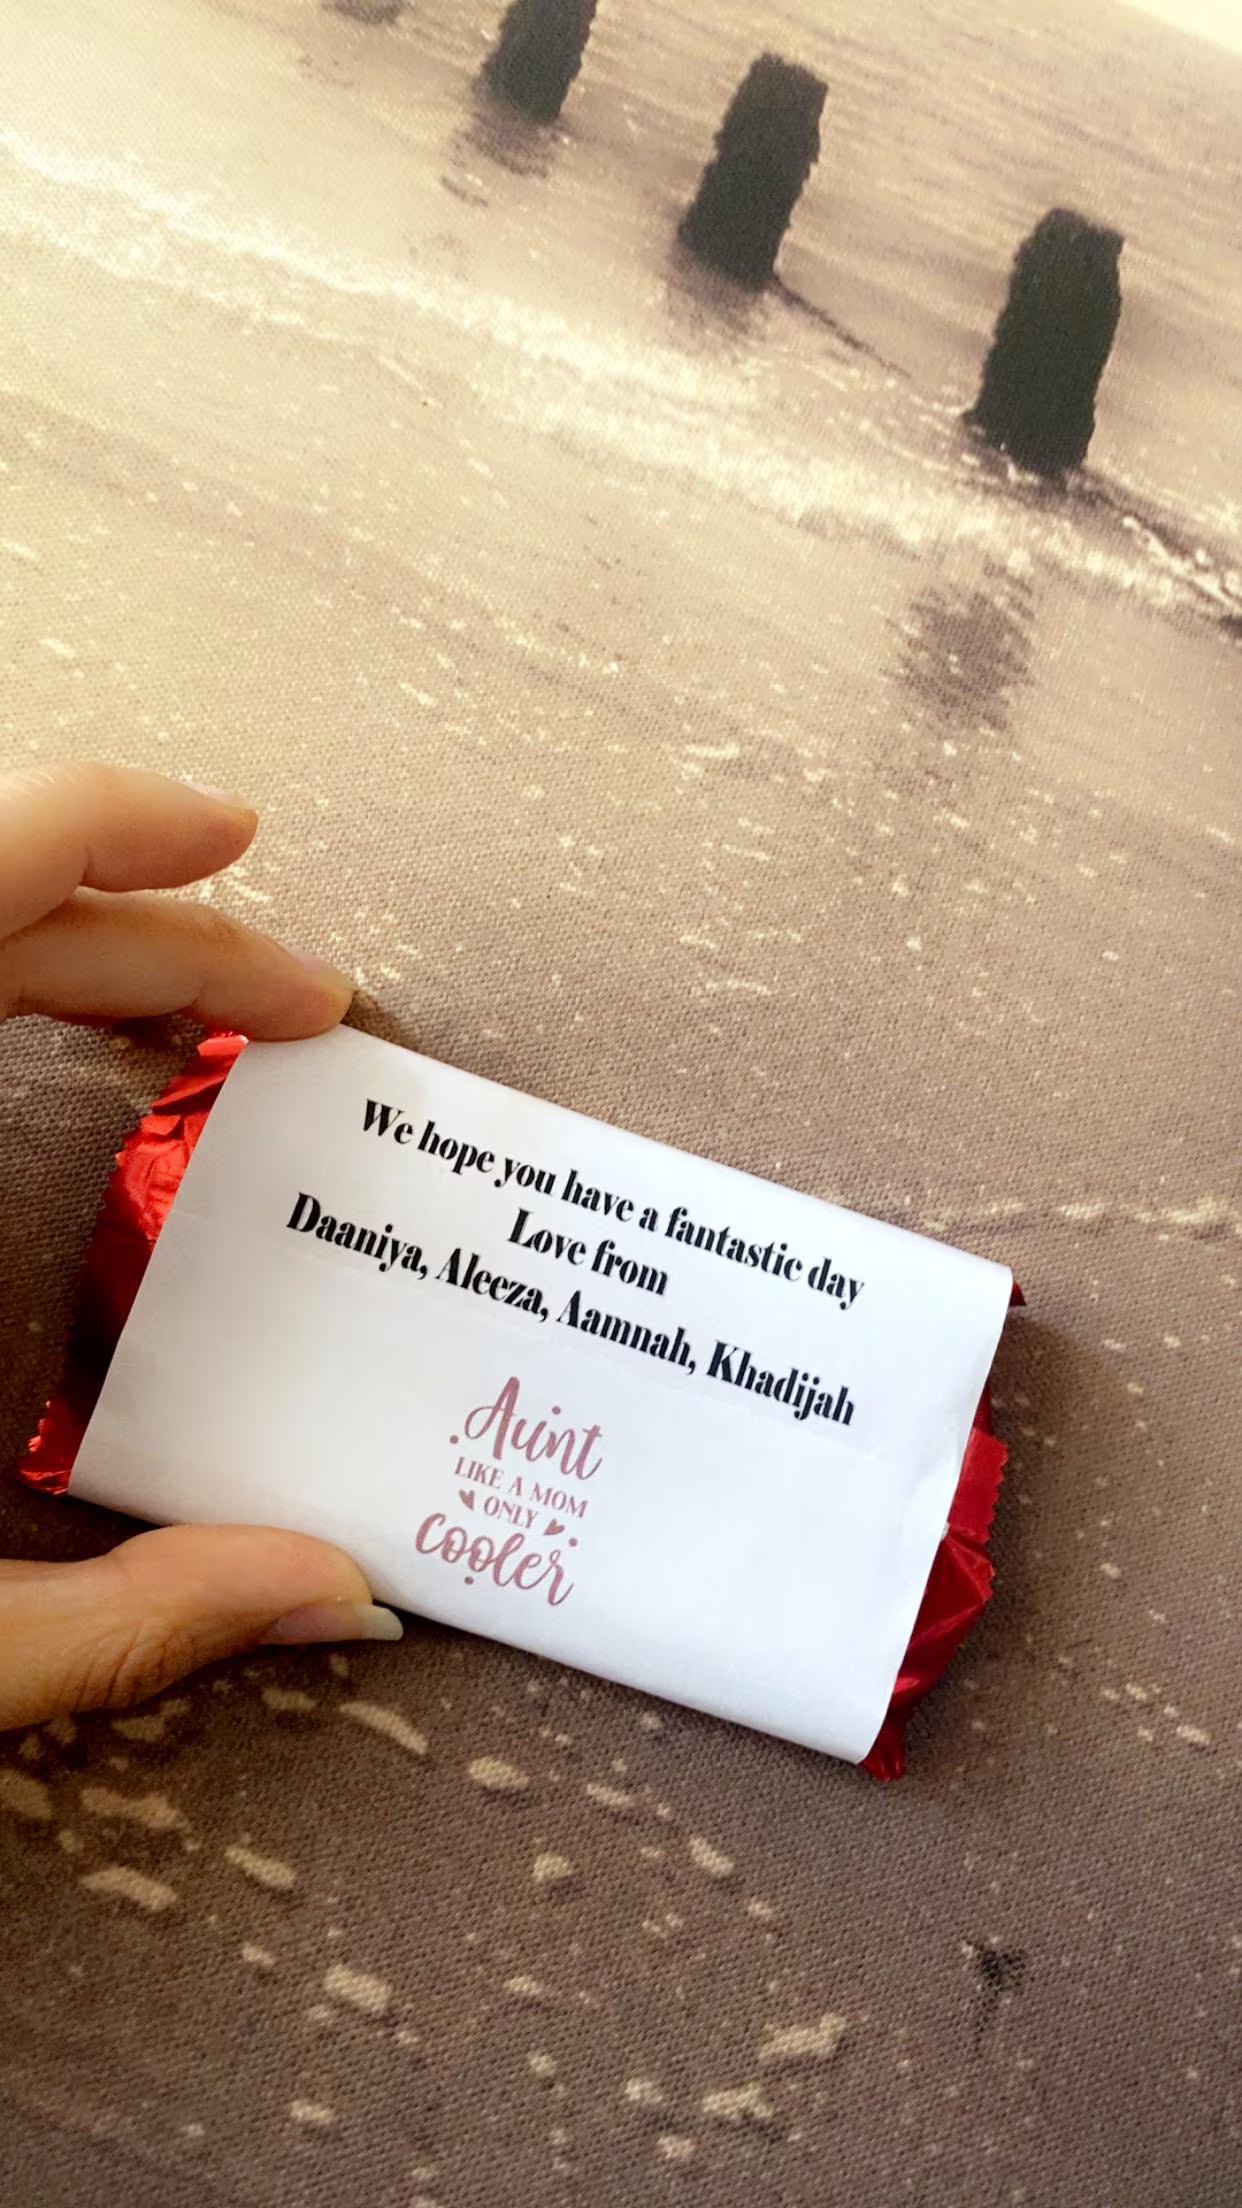 We hope you have a fantastic day
Love from
Daaniya, Aleeza, Aamnah, Khadijah
Aunt
LIKE A MOM
ONLY
cooler